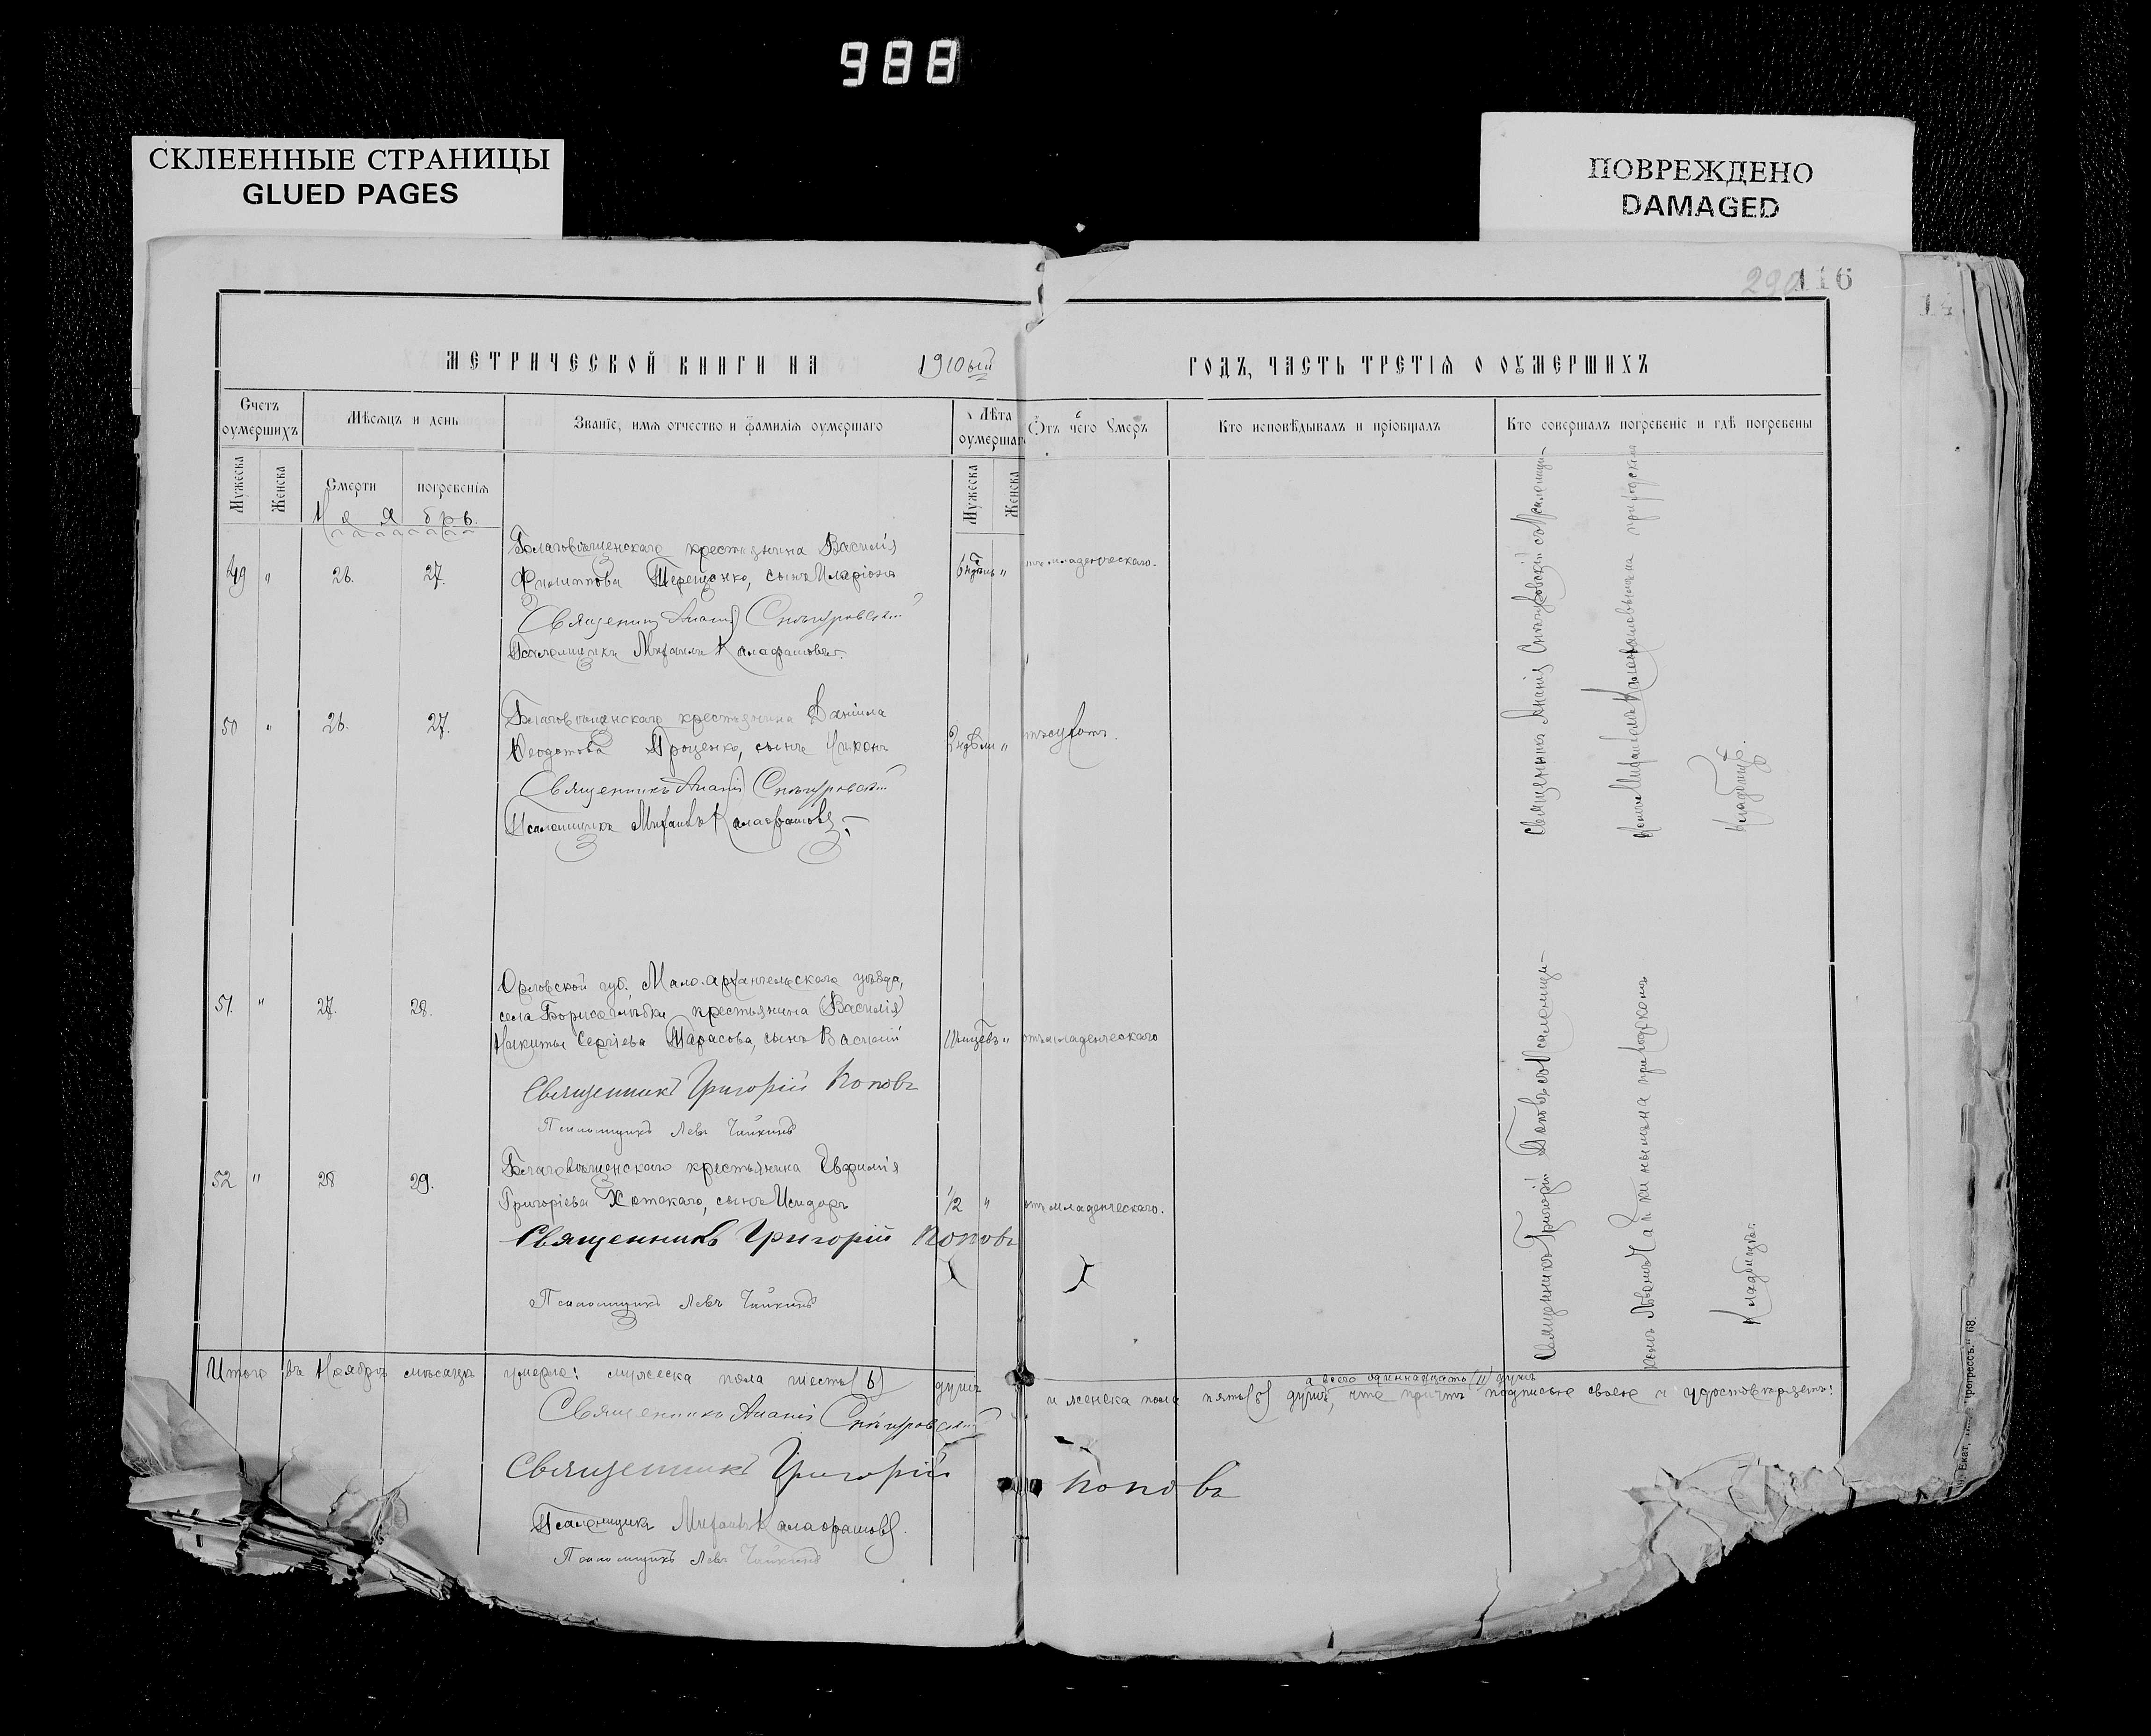 988
СКЛЕЕННЫЕ СТРАНИЦЫ
GLUED PAGES
ПОВРЕЖДЕНО
DAMAGED
290
116
14
МЕТРИЧЕСКОЙ КНИГИ НА 1910ый ГОДЪ, ЧАСТЬ ТРЕТІЯ О ОУМЕРШИХЪ
Счетъ оумершихъ
Мѣсяцъ и день
Званіе, имя отчество и фамилія оумершаго
Лѣта оумершаго
Отъ чего Умеръ
Кто исповѣдывалъ и пріобщалъ
Кто совершалъ погребеніе и гдѣ погребены
Мужеска
Женска
Смерти
погребенія
Мужеска
Женска
Ноябрь.
Благовѣщенскаго крестьянина Василія
49 " 26. 27. Филиппова Терещенко, сынъ Иларіонъ 6 недѣль " отъ младенческаго.
Священникъ Ананій Снѣгуровскій
Псаломщикъ Михаилъ Калафатовъ.
Благовѣщенскаго крестьянина Даніила
50 " 26. 27. Феодотова Проценко, сынъ Никонъ 2 недѣли "
Священникъ Ананій Снѣгуровскій
Псаломщикъ Михаилъ Калафатовъ
Священникъ Ананій Снѣгуровскій съ Псаломщи-
комъ Михаиломъ Калафатовымъ на приходскомъ
кладбищѣ.
Орловской губ. Мало-архангельскаго уѣзда,
51. " 27. 28. села Борисоглѣбки крестьянина (Василія)
Никиты Сергіева Тарасова, сынъ Василій "отъ младенческаго
Священникъ Григорій Поповъ
Псаломщикъ Левъ Чайкинъ
Благовѣщенскаго крестьянина Евфимія
52 " 28 29. Григоріева сынъ Исидоръ 1/2 " отъ младенческаго.
Священникъ Григорій Поповъ
Псаломщикъ Левъ Чайкинъ
Священникъ Григорій Поповъ съ Псаломщи-
комъ Львомъ Чайкинымъ на приходскомъ
Кладбищѣ.
Итого въ Ноябрѣ мѣсяцѣ умерло: мужеска пола шесть (6) душъ и женска пола пять (5) душъ, а всего одиннадцать (11) душъ что причтъ подписью своею и удостовѣряетъ:
Священникъ Ананій Снѣгуровскій
Священникъ Григорій Поповъ
Псаломщикъ Михаилъ Калафатовъ.
Псаломщикъ Левъ Чайкинъ
"Прогрессъ." 68.